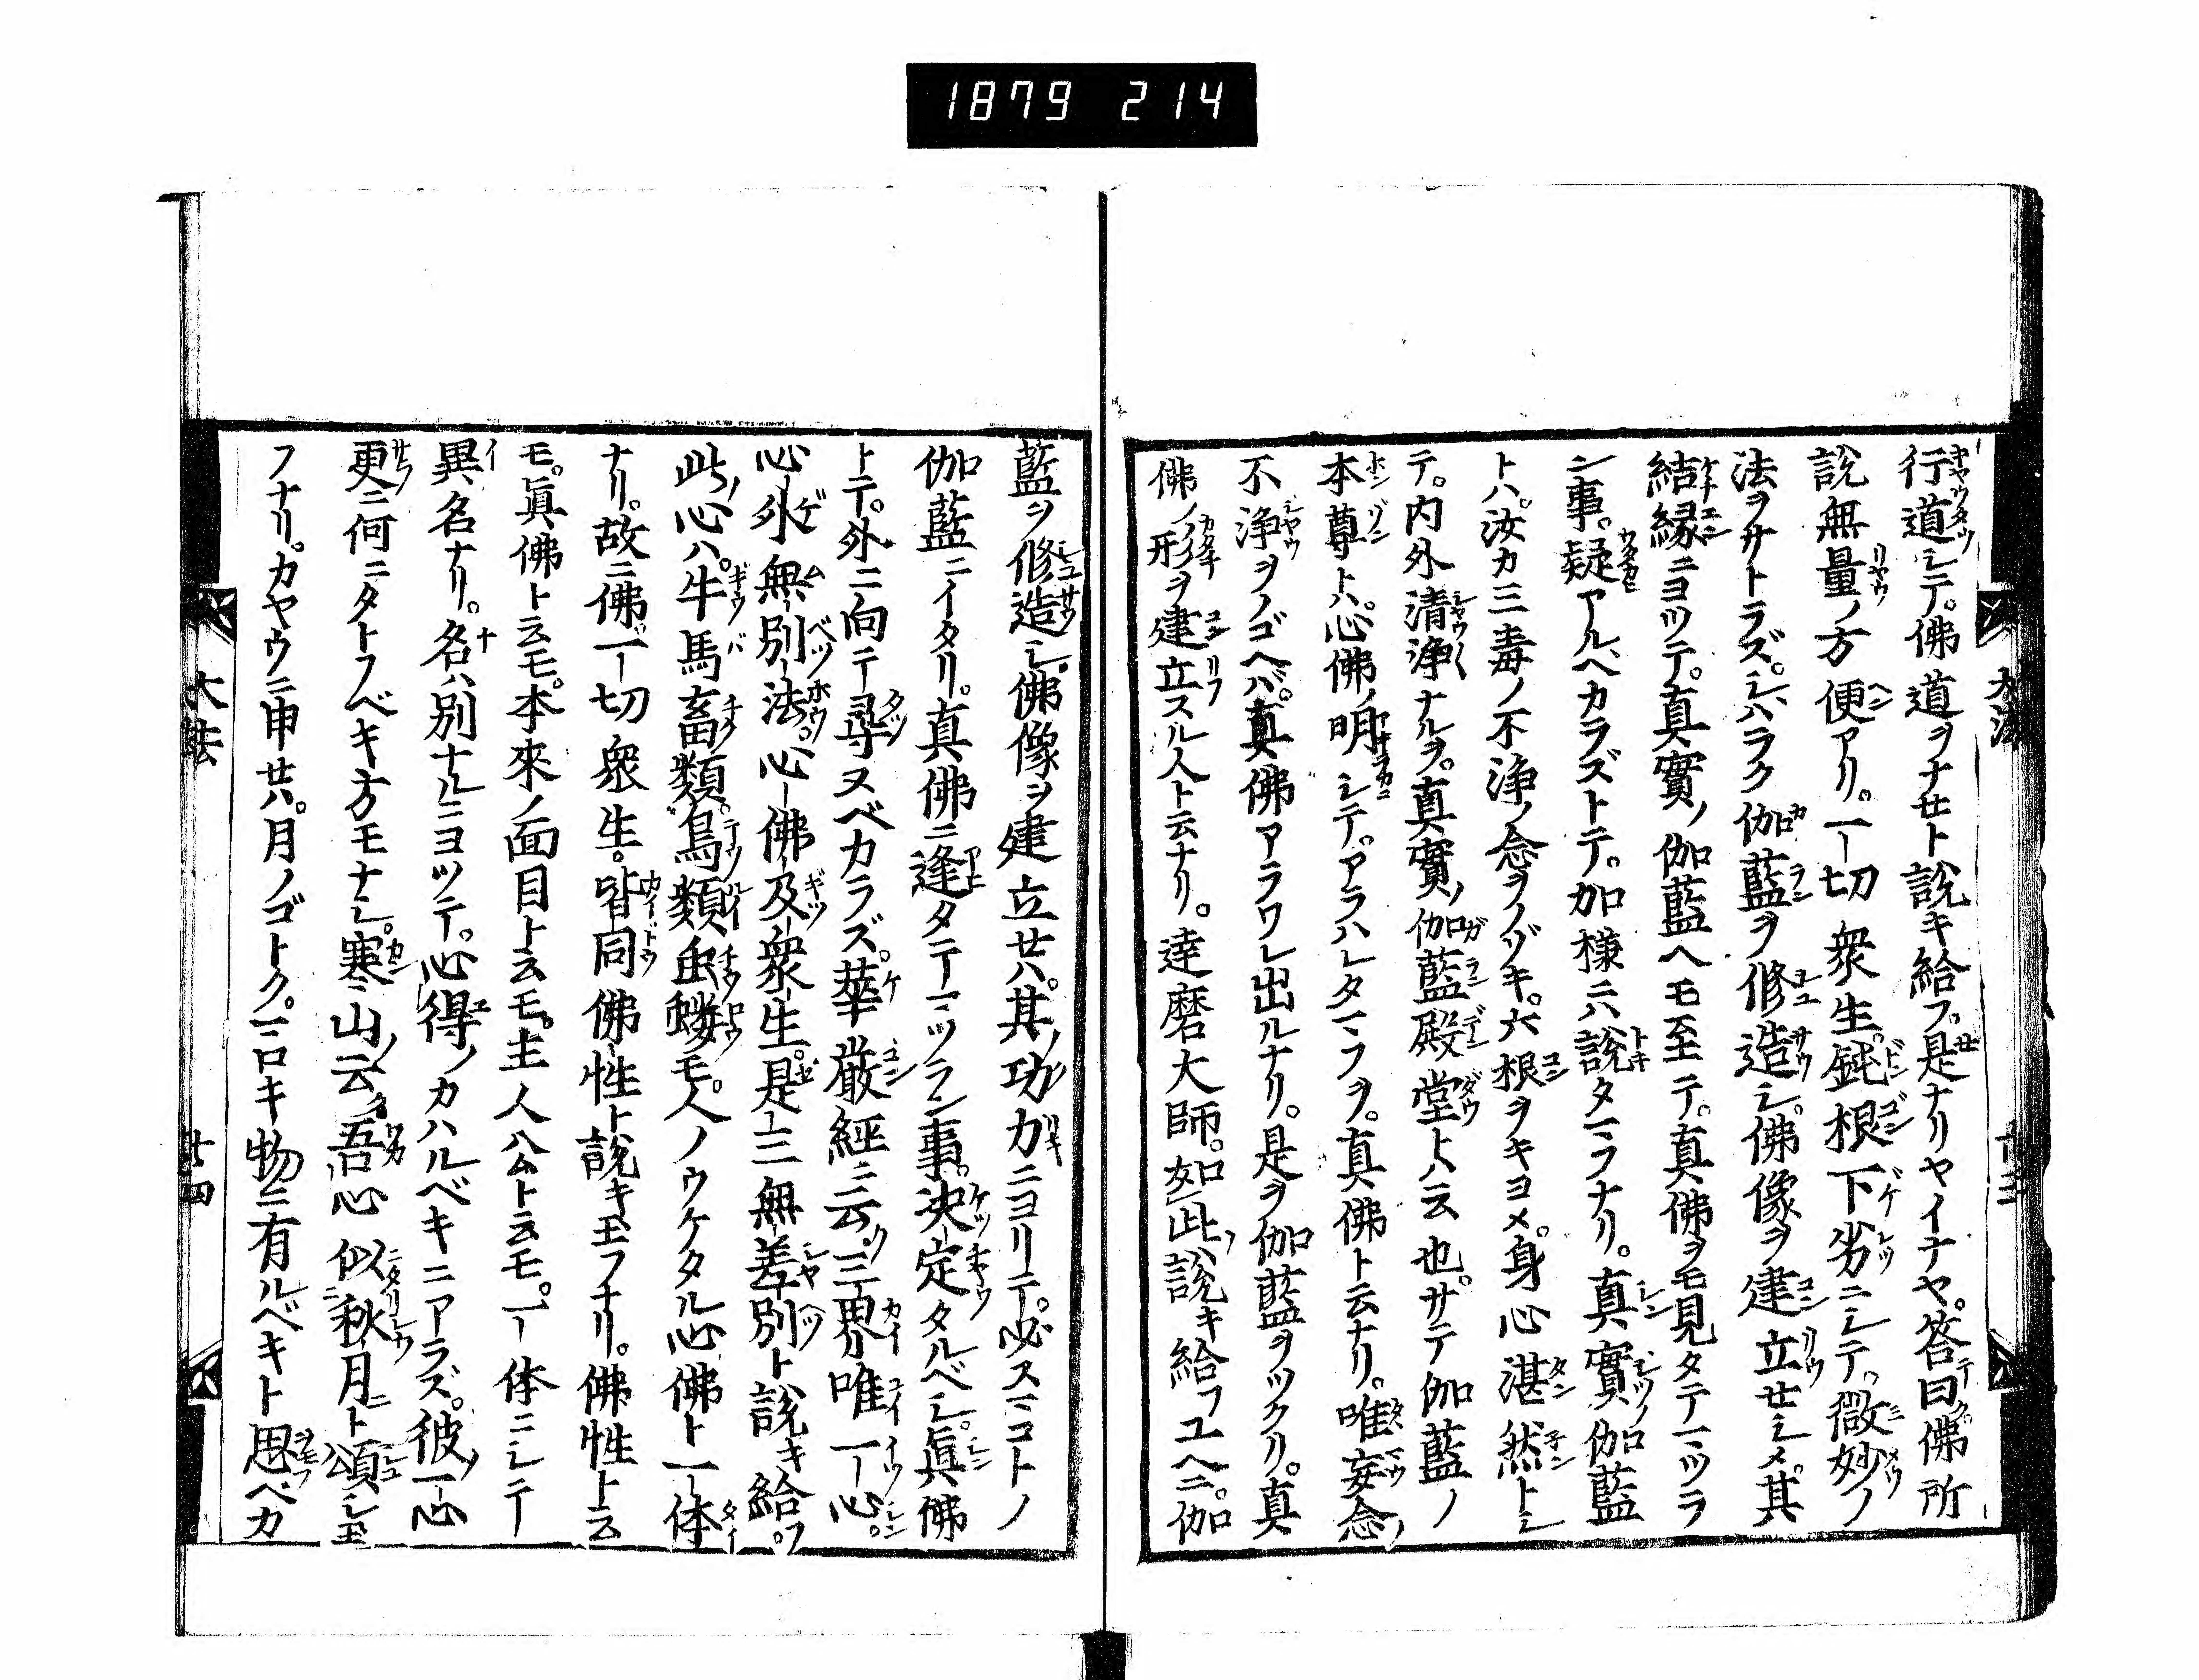 1879 214
行道シテ。佛道ヲナセト說キ給フ。是ナリヤイナヤ。答曰佛所
說無量ノ方便アリ。一切衆生。鈍根下劣ニシテ。微妙ノ
法ヲサトラズ。シバラク伽藍ヲ修造シ。佛像ヲ建立セシメ。其
結縁ニヨツテ。真實ノ伽藍ヘモ至テ。真佛ヲモ見タテマツラ
ン事。疑アルベカラズトテ。加様ニハ說タマフナリ。真實ノ伽藍
トハ。汝カ三毒ノ不浄ノ念ヲノゾキ。六根ヲキヨメ。身心湛然トシ
テ。内外清浄ナルヲ。真實ノ伽藍殿堂トハ云也。サテ伽藍ノ
本尊トハ。心佛ノ明シテ。アラハレタマフヲ。真佛ト云ナリ。唯妄念ノ
不浄ヲノゴヘバ。真佛アラワレ出ルナリ。是ヲ伽藍ヲツクリ。真
佛ノ形ヲ建立スル人ト云ナリ。達磨大師。如此說キ給フユヘニ。伽
藍ヲ修造シ。佛像ヲ建立セハ。其ノ功力ニヨリテ。必スマコトノ
伽藍ニイタリ。真佛ニ逢タテマツラン事。決定タルベシ。眞佛
トテ。外ニ向テ尋ヌベカラズ。華嚴經ニ云ク。三界唯一心。
心外無別法。心佛及衆生。是三無差別ト說キ給フ。
此ノ心ハ。牛馬畜類。鳥類虫螻モ。人ノウケタル心佛ト一体
ナリ。故ニ佛一切衆生。皆同佛性ト說キ玉フナリ。佛性ト云
モ。眞佛ト云モ。本來ノ面目ト云モ。主人公ト云モ。一体ニシテ
異名ナリ。名ハ別ナルニヨツテ。心得ノカハルベキニアラズ。彼ノ一心
更ニ何ニタトフベキ方モナシ。寒山ノ云ク吾心似秋月ト頌シ玉
フナリ。カヤウニ申セハ。月ノゴトク。マロキ物ニ有ルベキト思ベカ
大法
大法
廿四